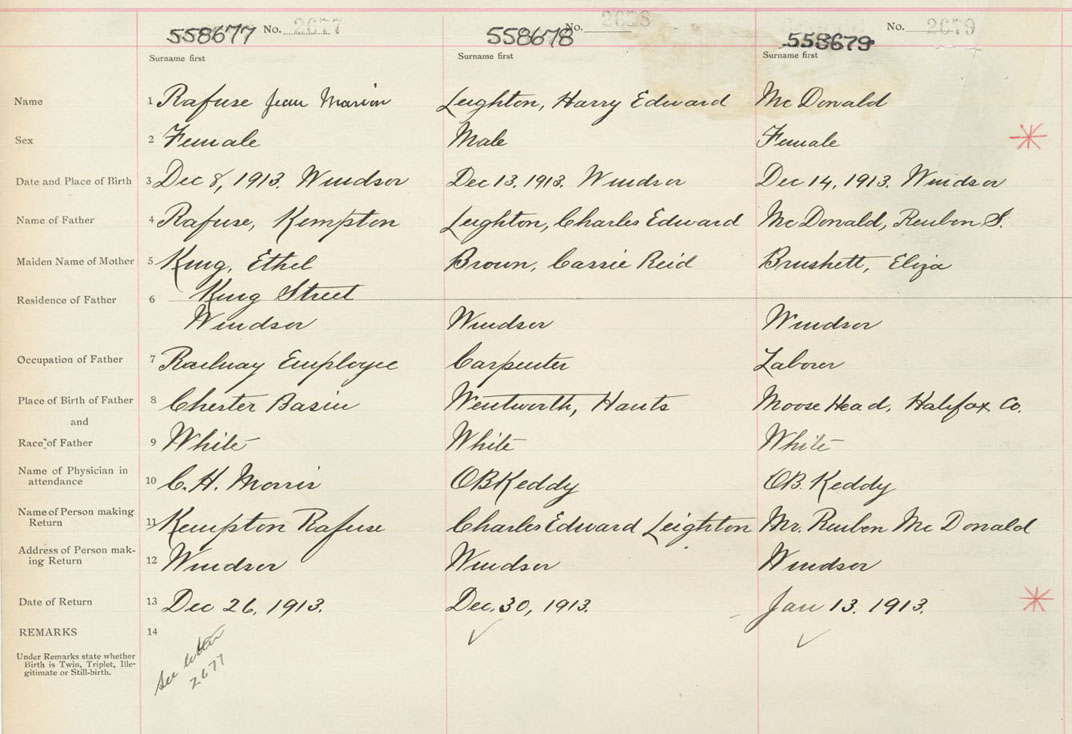 558677 No. 2677 558678 No. 2678 558679 No. 2679
Surname first Surname first Surname first
Name 1 Rafuse Jean Marion Leighton, Harry Edward McDonald
Sex 2 Female Male Female *
Date and Place of Birth 3 Dec 8, 1913. Windsor Dec 13, 1913. Windsor Dec 14, 1913. Windsor
Name of Father 4 Rafuse, Kempton Leighton, Charles Edward McDonald, Reuben S.
Maiden Name of Mother 5 King, Ethel Brown, Carrie Reid Brushett, Eliza
King Street
Residence of Father 6 Windsor Windsor Windsor
Occupation of Father 7 Railway Employee Carpenter Laborer
Place of Birth of Father 8 Chester Basin Wentworth, Hants Moose Head, Halifax Co.
and
Race of Father 9 White White White
Name of Physician in
attendance 10 C. H. Morris OBKeddy OB. Keddy
Name of Person making
Return 11 Kempton Rafuse Charles Edward Leighton Mr. Reuben McDonald
Address of Person mak-
ing Return 12 Windsor Windsor Windsor
Date of Return 13 Dec 26, 1913. Dec. 30, 1913. Jan 13. 1913. *
REMARKS 14 ✓ ✓
Under Remarks state whether
Birth is Twin, Triplet, Ille-
gitimate or Still-birth.
See letter
2677